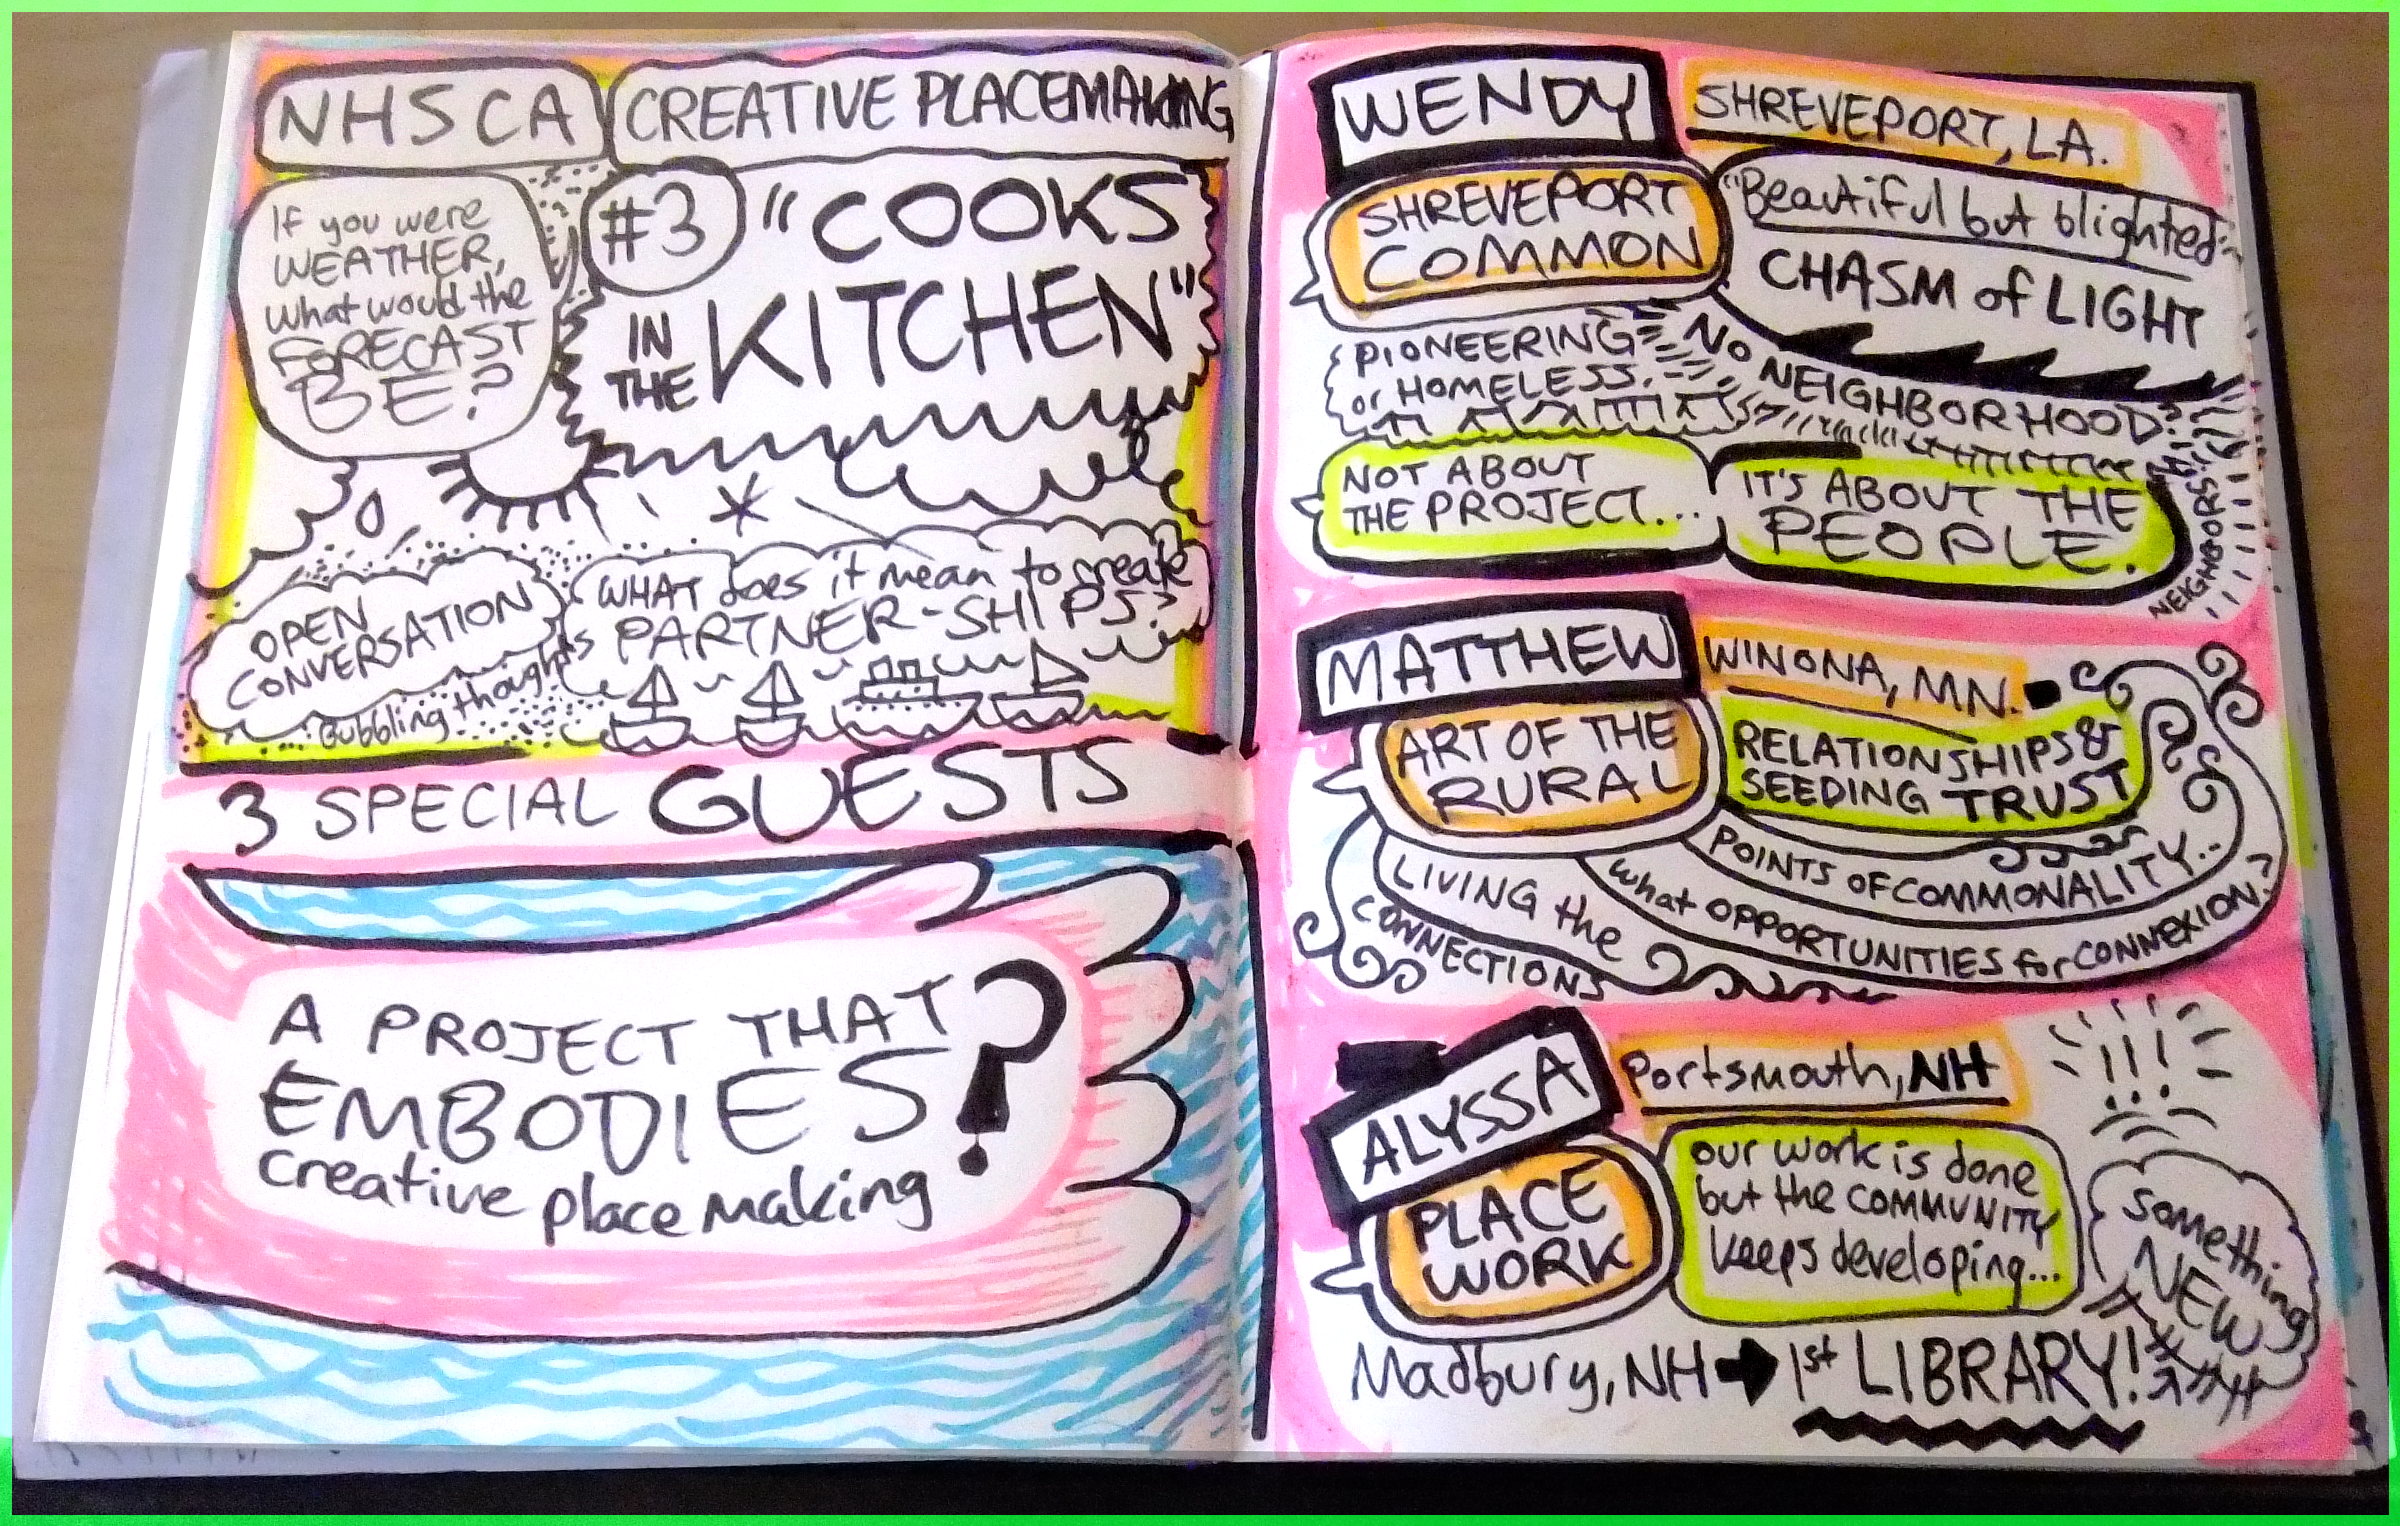 NHSCA
CREATIVE PLACEMAKING
If you were
WEATHER,
what would the
FORECAST
BE?
#3 "COOKS
IN
THE KITCHEN"
OPEN
CONVERSATION
Bubbling thoughts
WHAT does it mean to create
PARTNER-SHIPS?
3 SPECIAL GUESTS
A PROJECT THAT
EMBODIES ?
creative place making
WENDY
SHREVEPORT, LA.
SHREVEPORT
COMMON
"Beautiful but blighted"
CHASM of LIGHT
PIONEERING
or HOMELESS.
NO NEIGHBORHOOD?
NEIGHBORS!
NOT ABOUT
THE PROJECT...
IT'S ABOUT THE
PEOPLE.
MATTHEW
WINONA, MN.
ART OF THE
RURAL
RELATIONSHIPS &
SEEDING TRUST
POINTS OF COMMONALITY...
what OPPORTUNITIES for CONNEXION?
LIVING the
CONNECTIONS
ALYSSA
Portsmouth, NH
!!!
PLACE
WORK
our work is done
but the COMMUNITY
keeps developing...
Something
NEW
Madbury, NH → 1st LIBRARY!